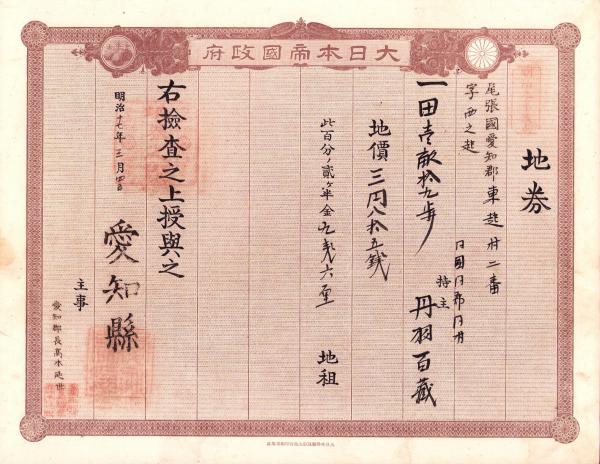 大日本帝國政府
地券
尾張國愛知郡東起村二番
字西之起
一田壱畝拾九歩
同國同郡同村
持主 丹羽百蔵
地價三円八拾五銭
此百分ノ貳ヶ半金九銭六厘 地租
右檢査之上授與之
明治十七年三月四日
愛知縣
主事
愛知郡長高木延世